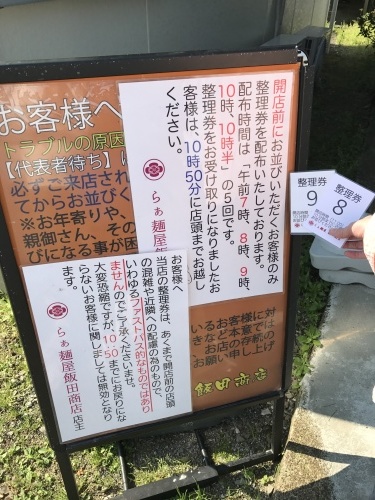 お客様へ
トラブルの原因
【代表者待ち】は
必ずご来店され
てからお並びく
※お年寄りや、
親御さん、その
びになる事が困
開店前にお並びいただくお客様のみ
整理券を配布いたしております。
配布時間は「午前7時、8時、9時、
10時、10時半」の5回です。
整理券をお受け取りになりましたお
客様は、10時50分に店頭までお越し
ください。
らぁ麺屋飯田商店
お客様へ
当店の整理券は、あくまで開店前の店頭
の混雑や近隣への配慮の為のもので、
いわゆるファストパス的なものではあり
ませんのでご了承くださいませ。
大変恐縮ですが、10:50までにお戻りにな
らないお客様に関しましては無効となり
ます。
らぁ麺屋飯田商店 店主
飯田商店
整理券
9
整理券
8